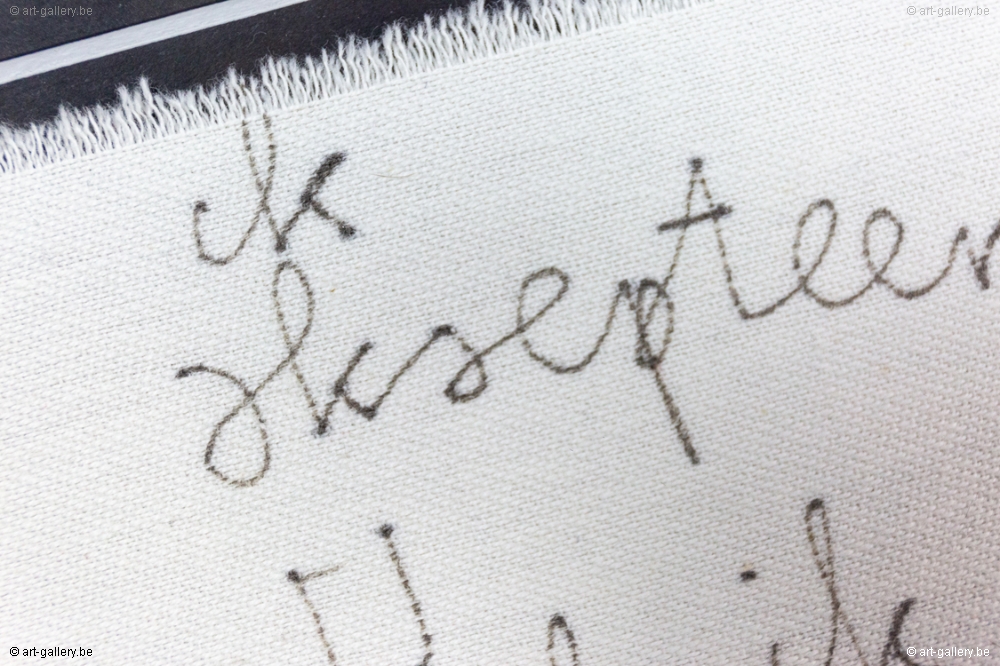 © art-gallery.be © art-gallery.be
ik
aksepteer
ik
© art-gallery.be © art-gallery.be